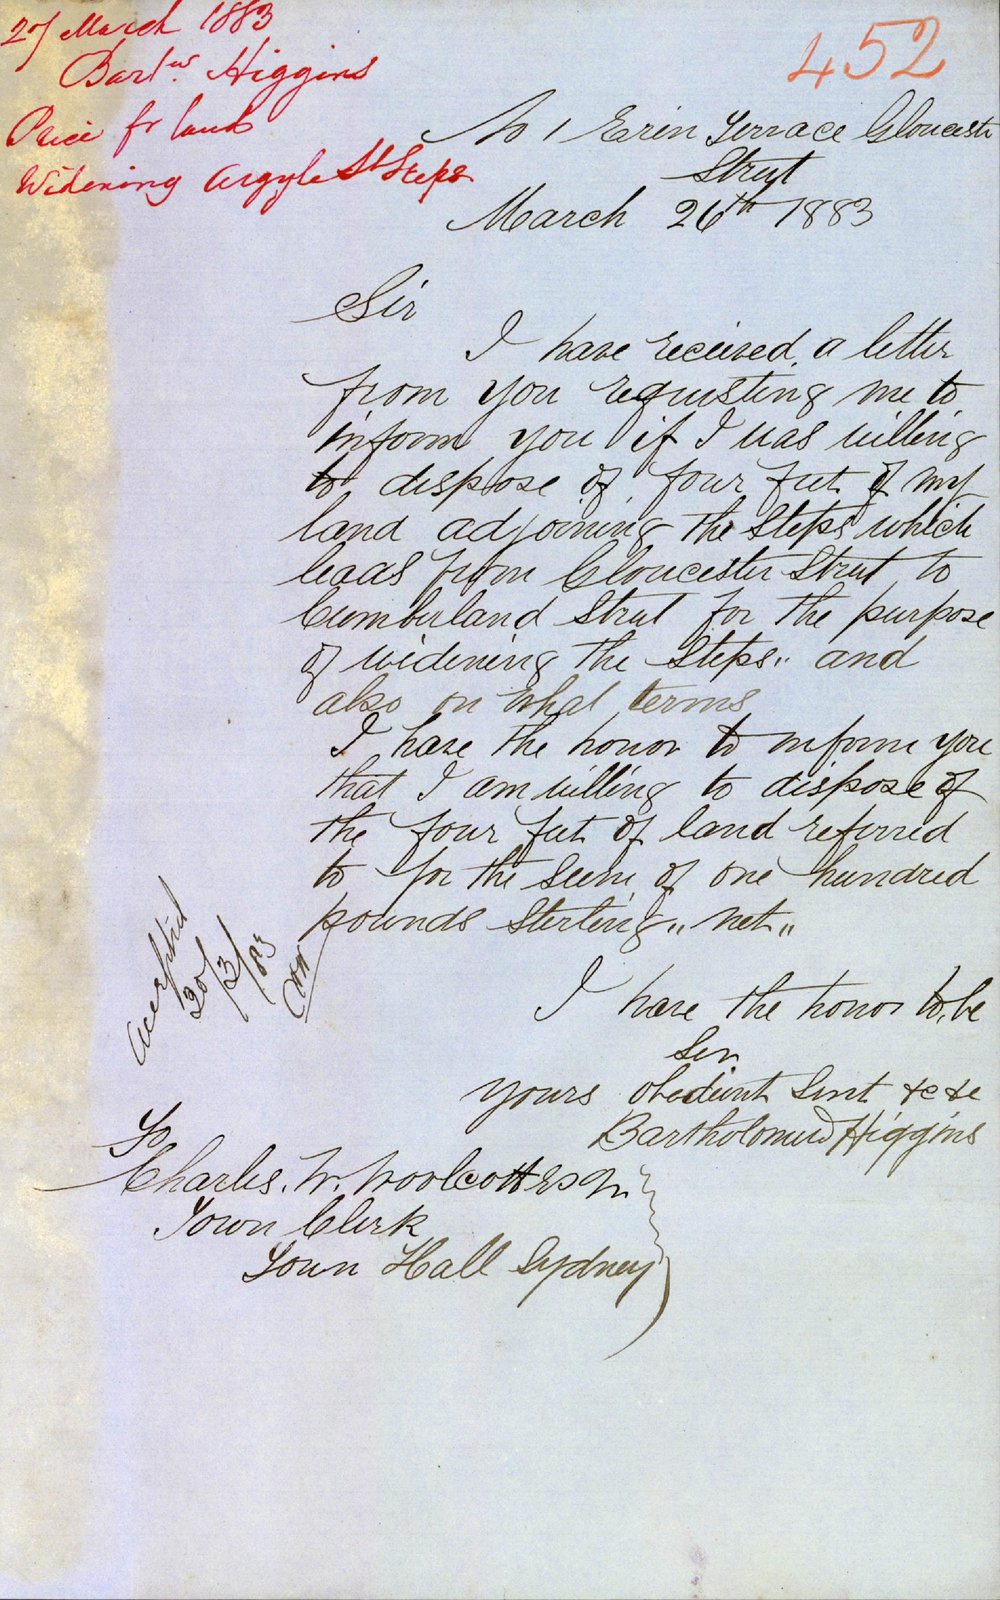 27 March 1883
Bartw. Higgins
Price for land
Widening Argyle St Steps
452
No 1 Erin Terrace Gloucester
Street
March 26th 1883
Sir
I have received a letter
from you requesting me to
inform you if I was willing
to dispose of four feet of my
land adjoining the Steps which
leads from Gloucester Street to
Cumberland Street for the purpose
of widening the Steps,, and
also on what terms
I have the honor to inform you
that I am willing to dispose of
the four feet of land referred
to for the sum of one hundred
pounds Sterling ,, net ,,
Accepted
/3/83
I have the honor to be
Sir
yours obedient Servt &c &c
Bartholomew Higgins
To
Charles. W. Woolcott Esqr
Town Clerk
Town Hall Sydney